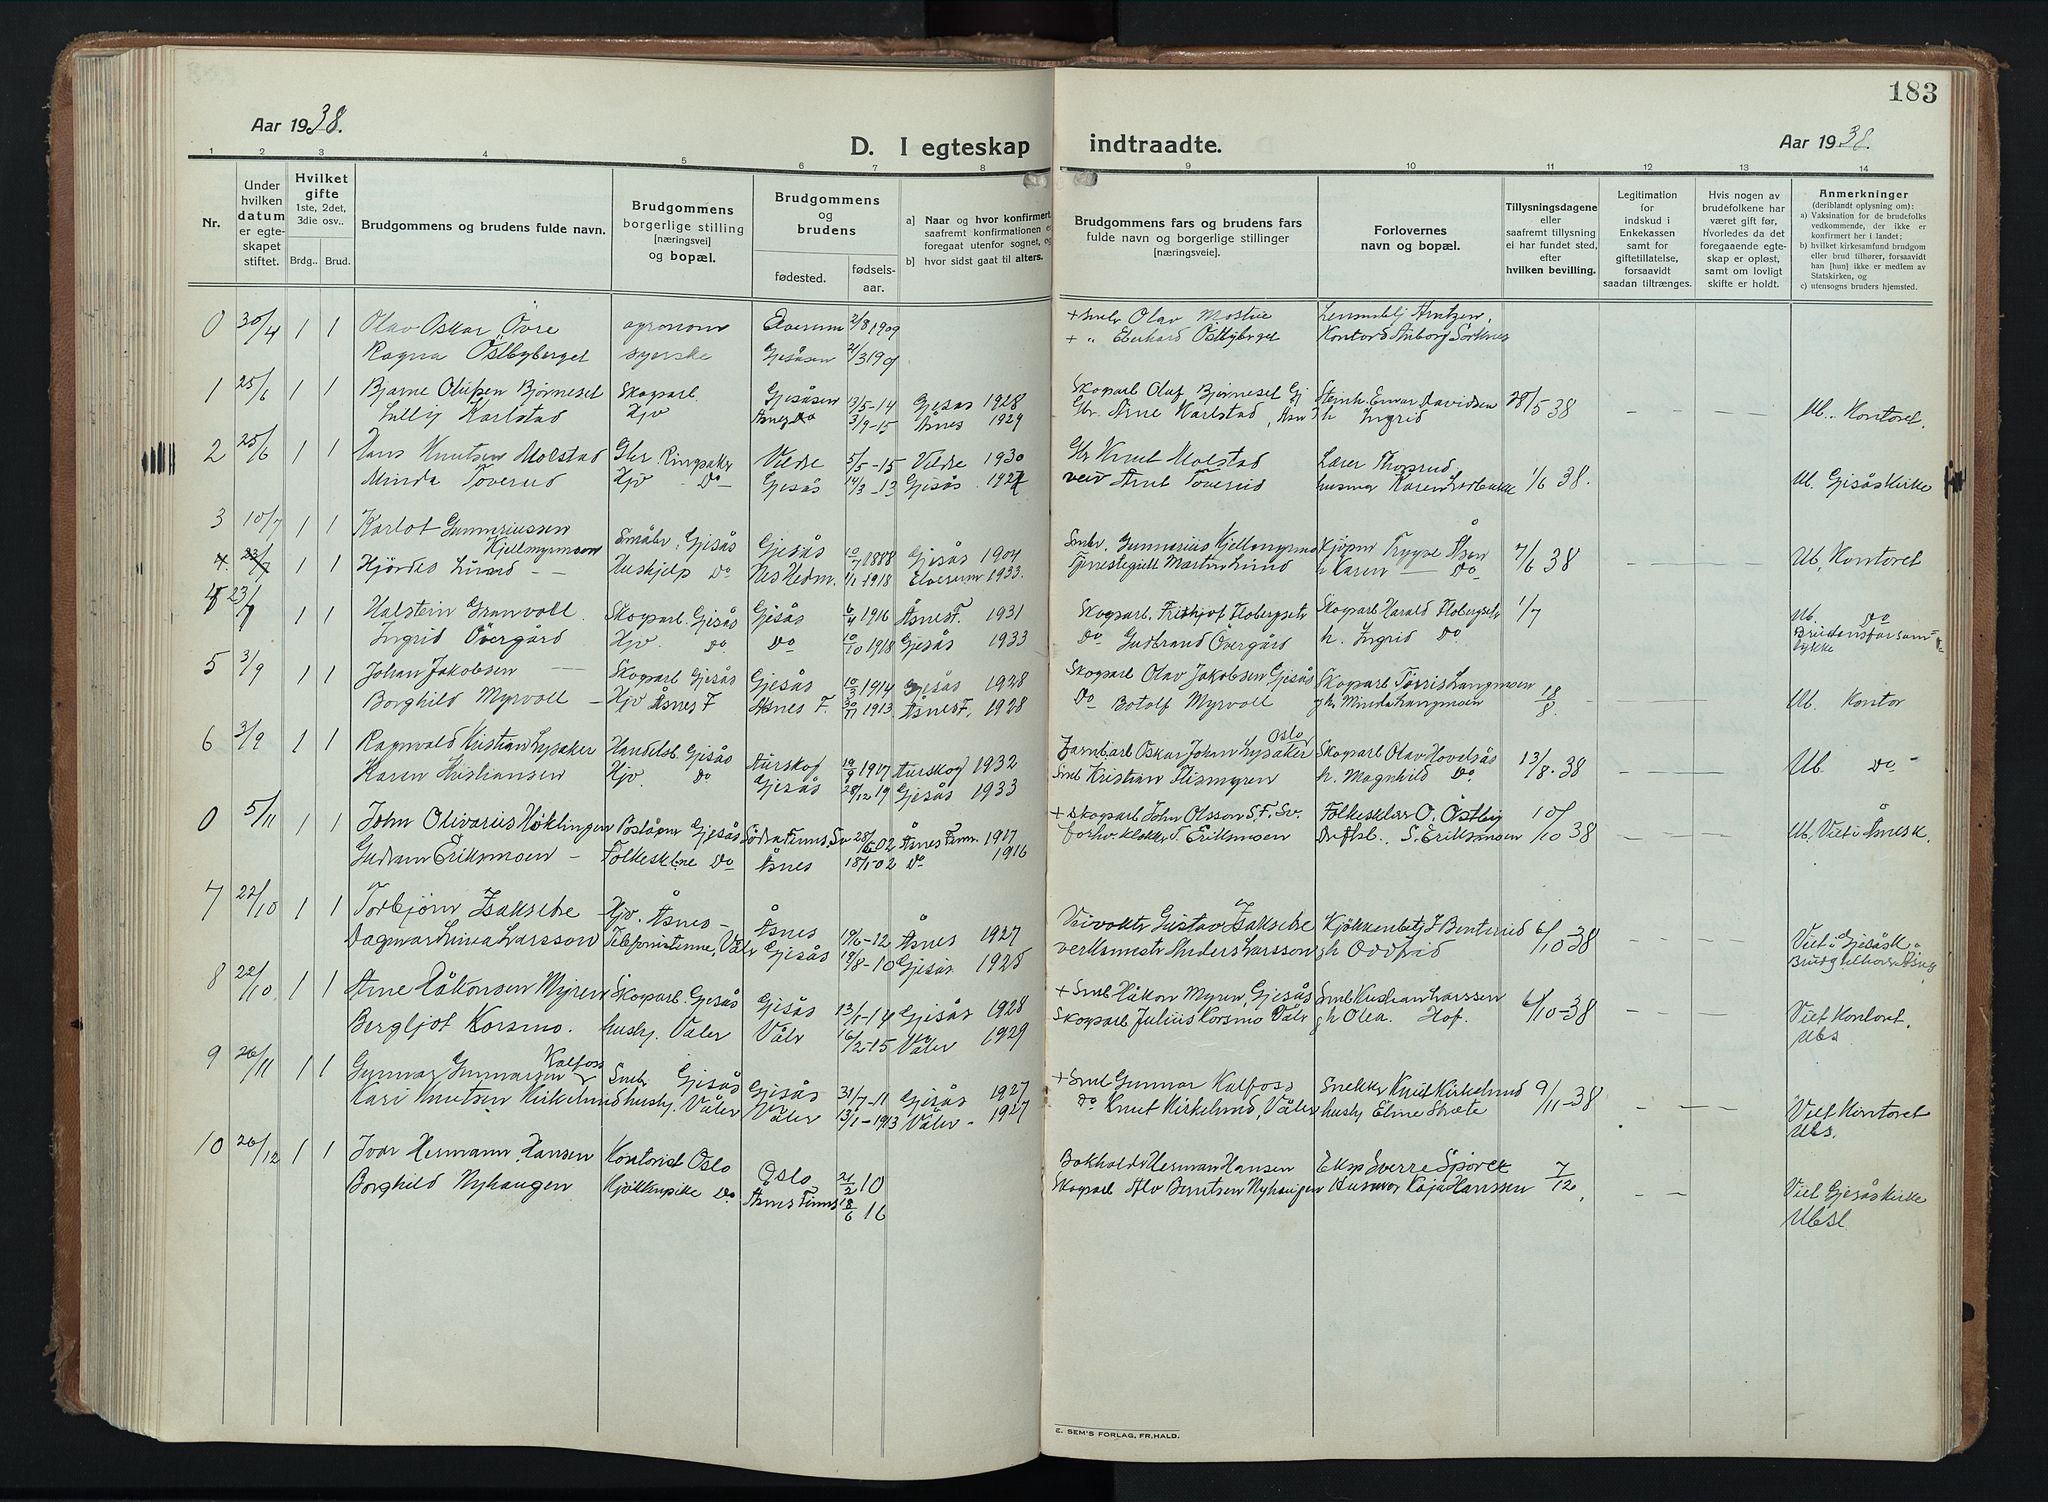 183
Aar 1938.
D. I egteskap indtraadte.
Aar 1938.
1 2 3 4 5 6 7 8 9 10 11 12 13 14
Nr.
Under hvilken datum er egte-skapet stiftet.
Hvilket gifte 1ste, 2det, 3die osv..
Brdg.. Brud.
Brudgommens og brudens fulde navn.
Brudgommens borgerlige stilling [næringsvei] og bopæl.
Brudgommens og brudens
fødested. fødsels-aar.
a] Naar og hvor konfirmert saafremt konfirmationen e foregaat utenfor sognet, og
b] hvor sidst gaat til alters.
Brudgommens fars og brudens fars fulde navn og borgerlige stillinger [næringsveie].
Forlovernes navn og bopæl.
Tillysningsdagene eller saafremt tillysning ei har fundet sted, efter hvilken bevilling.
Legitimation for indskud i Enkekassen samt for giftetillatelse, forsaavidt saadan tiltrænges.
Hvis nogen av brudefolkene har været gift før, hvorledes da det foregaaende egte-skap er opløst, samt om lovlig skifte er holdt.
Anmerkninger (deriblandt oplysning om):
a) Vaksination for de brudefolks vedkommende, der ikke er konfirmert her i landet;
b) hvilket kirkesamfund brudgom eller brud tilhører, forsaavidt han [hun] ikke er medlem av Statskirken, og
c) utensogns bruders hjemsted.
0 30/4 1 1 Olav Oskar Övre agronom Elverum 2/8 1909 + Smbr Olav Arntzen,
Ragna Östbyberget syerske Gjesåsen + " Eberhard Östbyberget Kontord
1 25/6 1 1 Bjarne Olufsen Björneset Skogarb. Gjesåsen 13/5-14 Gjesås 1928 Skogarb Oluf Björneset Gj Einar Davidsen 28/5 38
Karlstad Hjv 3/9-15 Åsnes 1929 Gbr. Arne Karlstad, h Ingrid Ub. Kontoret.
2 25/6 1 1 Hans Knutsen Molstad Gbr. Ringsaker Vildre 5/5-15 Vildre 1930 Gbr Knut Molstad Lærer
Minda Toverud Hjv Do Gjesås 14/3-13 Gjesås Toverud husmor Karen 1/6 38. U. Gjesås Kirke
3 10/7 1 1 Karlot Gunnariussen
Kjellmyrmoen Småbr. Gjesås Gjesås 10/7 1888 Gjesås 1904 Smbr. Gunnarius Kjellmyrmo Kjöpm Trygve Åsen 7/6 38
4. 23/7 1 1 Hjördis Lund Hushjelp Do Nes Hedm. 1/1 1918 Elverum 1933. Martin Lund h Karen Do Ub, Kontoret
4 23/7 1 1 Halstein Granvoll Skogarb. Gjesås Gjesås 6/4 1916 Åsnes F. 1931 Skogarb. Fridtjof Flobergsetr Skogarb Harald Flobergsetr 1/7
Ingrid Övergård Hjv. Do Do 10/10 1918 Gjesås 1933 Do Gudbrand Övergård h. Ingrid Do Ub. Do
5 3/9 1 1 Johan Jakobsen Skogarb Gjesås Gjesås 10/3 1914 Gjesås 1928 Skogarb Olav Jakobsen Gjesås Skogarb Torris Langmoen
Borghild Myrvoll Hjv Åsnes F Åsnes F. 30/11 1913. Åsnes F. 1928 Do Botolf Myrvoll h. Minda Langmoen 18/8. Ub. Kontor
6 3/9 1 1 Ragnvald Kristian Lysaker Handelsb. Gjesås Aurskog 10/9 1907 Aurskog 1932 Jarnbarb Oskar Johan Lysaker Oslo Skogarb Olav Hovelsås 13/8. 38
Karen Kristiansen Hjv. Do Gjesås 28/12 19 Gjesås 1933 Smb Kristian h. Magnhild Do Ub. Do
0 5/11 1 1 John Olivarius Höklingen Gjesås 28/5 02 Åsnes Finn. 1917 + Skogarb John Olsson S.F. Sv. O. Östby 10/10 38
Gudrun Eriksmoen Do Åsnes 18/1-02 Do 1916 Eriksmoen S. Eriksmoen Ub.
7 22/10 1 1 Torbjörn Isaksetre Hjv. Åsnes Åsnes 19/6-12 Åsnes 1927 Gustav Isaksetre 6/10 38
Dagmar Linea Larsson Telefonistinne, Våler Gjesås 19/8-10 Gjesås 1925 verksmestr Anders Larsson h Oddfrid Viet i Gjesåsk.
8 22/10 1 1 Arne Håkonsen Myren Skogarb. Gjesås Gjesås 13/1-14 Gjesås 1928 + Smb Håkon Myren, Gjesås Smb Kristian Larssen 6/10-38
Bergljot Korsmo. hushj. Våler Våler 16/2-15 Våler 1929 Skogarb Julius Korsmo Våler h Olea. Hof. Viet Kontoret.
Ubs
9 26/11 1 1 Gunnar Gunnarsen Kalfoss Smbr Gjesås Gjesås 31/7-11 Gjesås 1927 + Smb Gunnar Kalfoss Snekker Knut Kirkelund 9/11-38
Kari Knutsen Kirkelund hushj. Våler Våler 13/1-1913 Våler - 1927 Do Knut Kirkelund, Våler hushj Viet Kontoret
Ubs.
10 26/12 1 1 Ivar Hermann Hansen Kontorist Oslo Oslo 21/2 10 Bokholdr Herman Hansen Eksp Sverre 7/12
Borghild Nyhaugen Kjökkenpike Do Åsnes Finns 18/6 16 Skogarb Alv Berntsen Nyhaugen Husmor Kaja Hanssen Viet Gjesås Kirke
Ubsl
E. SEM'S FORLAG, FR.HALD.